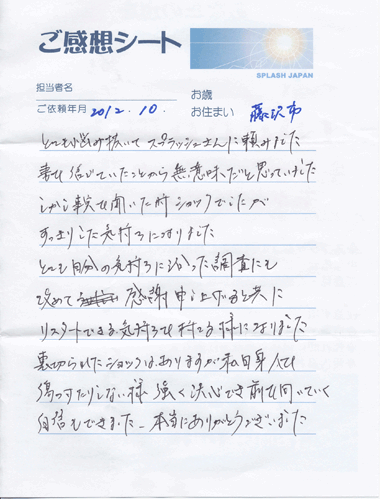 ご感想シート
SPLASH JAPAN
担当者名
お歳
ご依頼年月 2012.10.
お住まい 藤沢市
とても悩み抜いて スプラッシュさんに頼みました
妻を信じていたことから無意味だと思っていました
しかし事実を聞いた時ショックでしたが
すっきりした気持ちになりました
とても自分の気持ちに沿った調査にも
改めて 感謝申し上げると共に
リスタートできる気持ちも持てる様になりました
裏切られたショックはありますが私自身人でも
傷つけたりしない様 強く決心でき前を向いていく
自信もできました 本当にありがとうございました